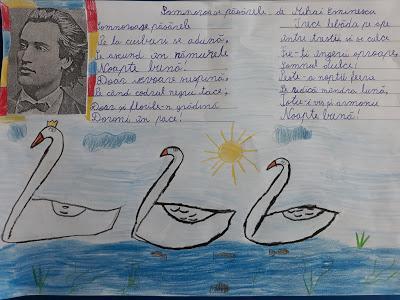 Somnoroase păsărele de Mihai Eminescu
Somnoroase păsărele
Pe la cuiburi se adună,
Se ascund în rămurele
Noapte bună!
Doar izvoare suspină,
Pe când codrul negru tace,
Dorm și florile-n grădină
Dormi în pace!
Trece lebăda pe ape
Între trestii să se culce
Fie-ți îngerii aproape,
Somnul dulce!
Peste-a nopții feerie
Se ridică mândra lună,
Totu-i vis și armonie
Noapte bună!